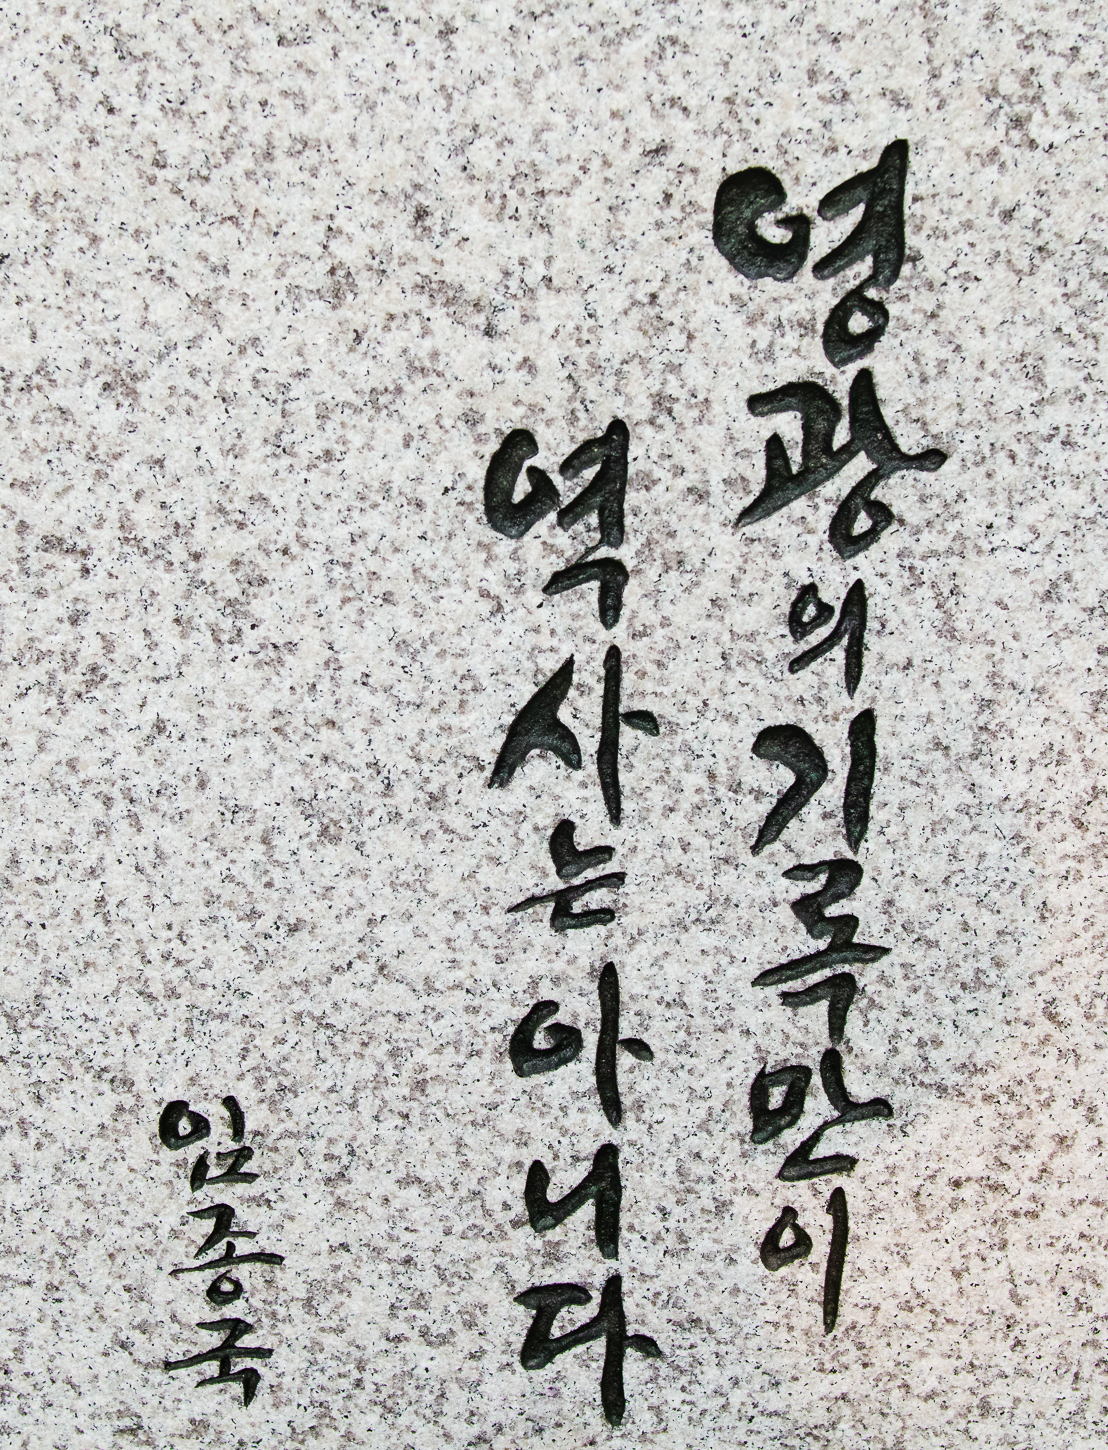 영광의 기록만이
역사는 아니다
임종국